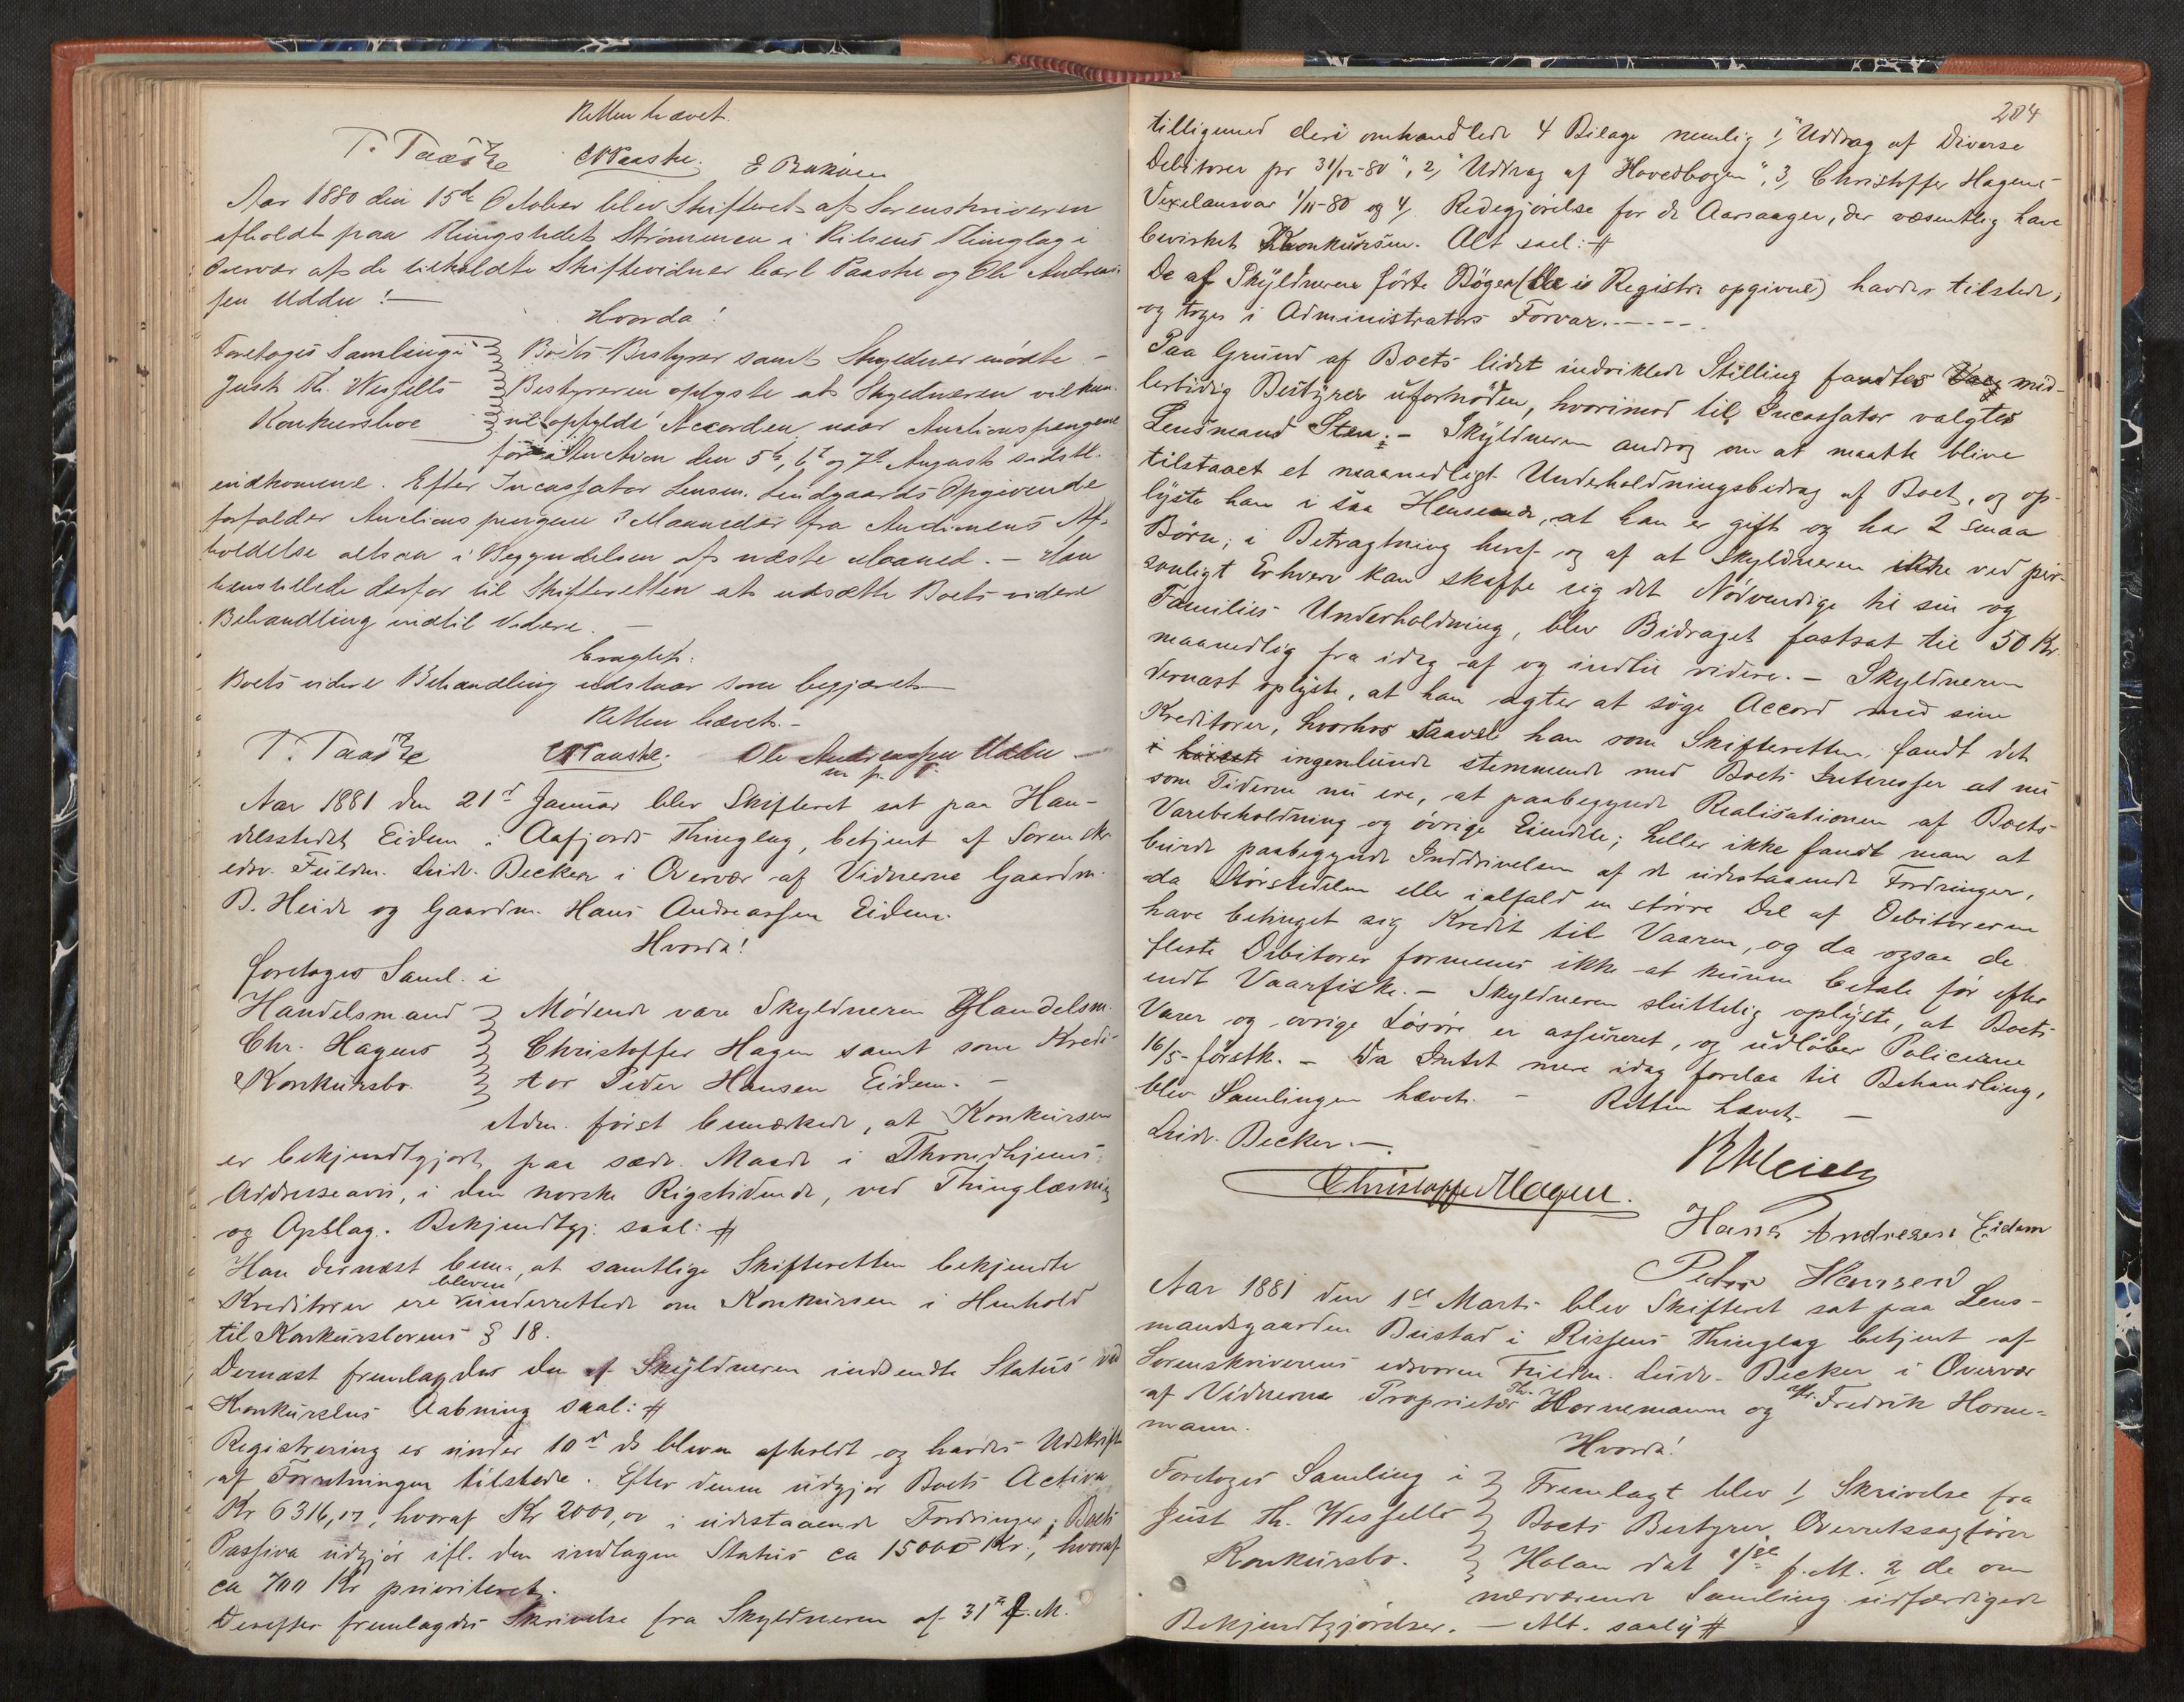 Retten hævet.
T. Taaske CPaaske. E Bakøen
Aar 1880 den 15de October blev Skifteret af Sorenskriveren
afholdt paa Thingstedet Strømmen i Ritsens Thinglag i
Overvær af de tilkaldte Skiftevidner Carl Paaske og Ole Andreas-
sen Uddu! —
Hvorda!
Foretoges Samling i
Just Th. Wessells
Konkursboe
Boets Bestyrer samt Skyldner mødte. –
Bestyreren oplyste at Skyldneren vil kun-
ne opfylde Accorden, naar Auctionspengene
for Auctionen den 5te, 6te og 7de August sidstl.
indkomme. Efter Incassator Lensm. Lindgaards Opgivende
forfalder Auctionspengene 3 Maaneder fra Auctionens Af-
holdelse altsaa i Begyndelsen af næste Maaned. – Han
henstillede derfor til Skifteretten at udsætte Boets videre
Behandling indtil Videre. –
Eragtet:
Boets videre Behandling udstaar som begjæret
Retten hævet. –
T. Taaske CPaaske. Ole Andreassen Uddu –
m. p. P.
Aar 1881 den 21de Januar blev Skifteret sat paa Han-
delsstedet Eidem i Aafjords Thinglag, betjent af Sorenskr.
edsv. Fuldm. Ludv. Becker i Overvær af Vidnerne Gaardm.
B. Heide og Gaardm. Hans Andreassen Eidem.
Hvorda!
foretoges Saml. i
Handelsmand
Chr. Hagens
Konkursbo.
Mødende vare Skyldneren Handelsm.
Christoffer Hagen samt som Kredi-
tor Peder Hansen Eidem. –
Adm. først bemærkede, at Konkursen
er bekjendtgjort paa sædv. Maade i Throndhjems
Adresseavis, i den norske Rigstidende, ved Thinglæsning
og Opslag. Bekjendtgj. saal: #
Han dernæst bem., at samtlige Skifteretten bekjendte
Kreditorer ere bleven underrettede om Konkursen i Henhold
til Konkurslovens § 18.
Dernæst fremlagdes den af Skyldneren indsendte Status ved
Konkursens Aabning saal: #
Registrering er under 10de ds bleven afholdt og havdes Udskrift
af Forretningen tilstede. Efter denne udgjør Boets Activa
Kr 6316,07, hvoraf Kr 2000,00 i udestaaende Fordringer; Boets
Passiva udgjør ifl. den indtagne Status ca 15000 Kr., hvoraf
ca 700 Kr prioriteret.
Derefter fremlagdes Skrivelse fra Skyldneren af 31te f. M.
204
tilligemed deri omhandlede 4 Bilage nemlig 1, "Uddrag af Diverse
Debitorer pr 31/12-80", 2, "Uddrag af Hovedbogen", 3, Christoffer Hagens
Vexelansvar 1/11-80 og 4, Redegjørelse for de Aarsager, der væsentlig have
bevirket Konkursen. Alt saal: #
De af Skyldneren førte Bøger (de i Registr. opgivne) havdes tilstede,
og toges i Administrators Forvar. – – – –
Paa Grund af Boets lidet indviklede Stilling fandtes Valg mid-
lertidig Bestyrer ufornøden, hvorimod til Incassator valgtes
Lensmand Sten. – Skyldneren androg om at maatte blive
tilstaaet et maanedligt Underholdningsbidrag af Boet, og op-
lyste han i saa Henseende, at han er gift og har 2 smaa
Børn; i Betragtning heraf og af at Skyldneren ikke ved per-
sonligt Erhverv kan skaffe sig det Nødvendige til sin og
Families Underholdning, blev Bidraget fastsat til 50 Kr.
maanedlig fra idag af og indtil videre. – Skyldneren
dernæst oplyste, at han agter at søge Accord med sine
Kreditorer, hvorhos saavel han som Skifteretten fandt det
i høieste ingenlunde stemmende med Boets Interesser at nu
som Tiderne nu ere, at paabegynde Realisationen af Boets
Varebeholdning og øvrige Eiendele; heller ikke fandt man at
burde paabegynde Inddrivelsen af de udestaaende Fordringer,
da Størstedelen eller ialfald en større Del af Debitorerne
have betinget sig Kredit til Vaaren, og da ogsaa de
fleste Debitorer formenes ikke at kunne betale før efter
endt Vaarfiske. – Skyldneren sluttelig oplyste, at Boets
Varer og øvrige Løsøre er assureret, og udløber Policerne
16/5 førstk. – Da Intet mere idag forelaa til Behandling,
blev Samlingen hævet. – Retten hævet –
Ludv. Becker. –
BHeide
Christoffer Hagen.
Hans Andresen Eidem
Peder Hansen
Aar 1881 den 1ste Marts blev Skifteret sat paa Lens-
mandsgaarden Bustad i Rissens Thinglag betjent af
Sorenskriverens edsvoren Fuldm. Ludv. Becker i Overvær
af Vidnerne Proprietær Th. Hornemann og Hr. Fredrik Horne-
mann.
Hvorda!
Foretoges Samling i
Just Th. Wessells
Konkursbo.
Fremlagt blev 1, Skrivelse fra
Boets Bestyrer, Overretssagfører
Holan dat f. M. 2, de om
nærværende Samling udfærdigede
Bekjendtgjørelser. – Alt. saaly #